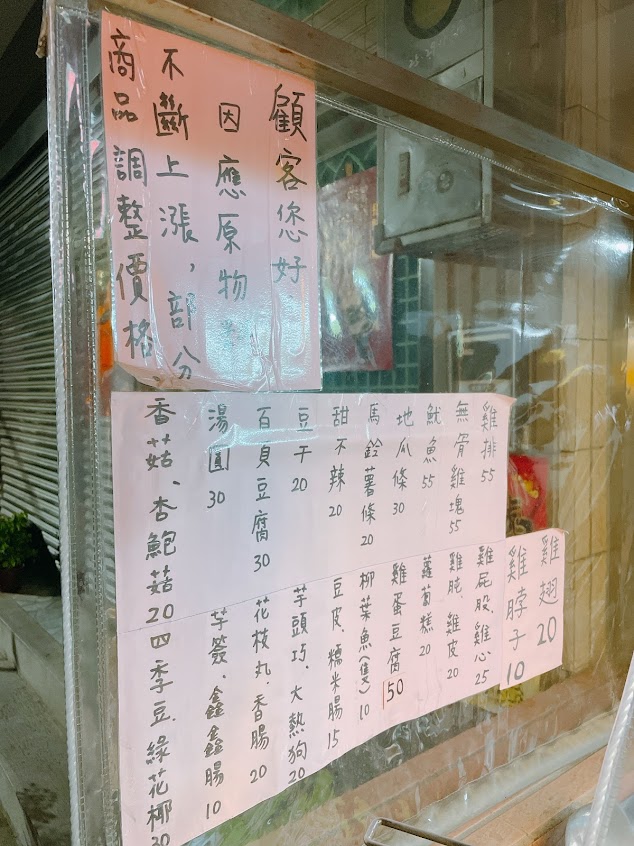 顧客您好
因應原物
不斷上漲，部分
商品調整價格
雞排55
無骨雞塊55
魷魚55
地瓜條30
馬鈴薯條20
甜不辣20
豆干20
百頁豆腐30
湯圓30
香菇、杏鮑菇20
雞翅20
雞脖子10
雞屁股、雞心25
雞肫、雞皮20
蘿蔔糕20
雞蛋豆腐50
柳葉魚(隻)10
豆皮、糯米腸15
芋頭巧、大熱狗20
花枝丸、香腸20
芋簽、鑫鑫腸10
四季豆、綠花椰30